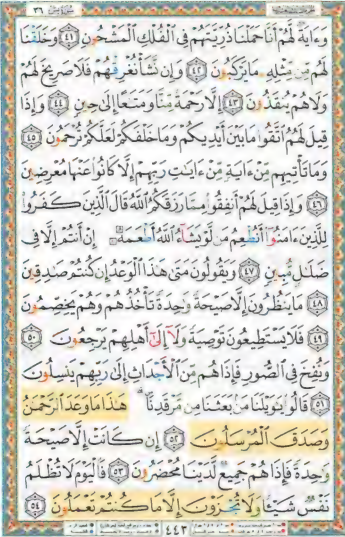 وَءَايَةٌ لَّهُمْ أَنَّا حَمَلْنَا ذُرِّيَّتَهُمْ فِى ٱلْفُلْكِ ٱلْمَشْحُونِ ٤١ وَخَلَقْنَا
لَهُم مِّن مِّثْلِهِۦ مَا يَرْكَبُونَ ٤٢ وَإِن نَّشَأْ نُغْرِقْهُمْ فَلَا صَرِيخَ لَهُمْ
وَلَا هُمْ يُنقَذُونَ ٤٣ إِلَّا رَحْمَةً مِّنَّا وَمَتَٰعًا إِلَىٰ حِينٍ ٤٤ وَإِذَا
قِيلَ لَهُمُ ٱتَّقُوا۟ مَا بَيْنَ أَيْدِيكُمْ وَمَا خَلْفَكُمْ لَعَلَّكُمْ تُرْحَمُونَ ٤٥
وَمَا تَأْتِيهِم مِّنْ ءَايَةٍ مِّنْ ءَايَٰتِ رَبِّهِمْ إِلَّا كَانُوا۟ عَنْهَا مُعْرِضِينَ
٤٦ وَإِذَا قِيلَ لَهُمْ أَنفِقُوا۟ مِمَّا رَزَقَكُمُ ٱللَّهُ قَالَ ٱلَّذِينَ كَفَرُوا۟
لِلَّذِينَ ءَامَنُوٓا۟ أَنُطْعِمُ مَن لَّوْ يَشَآءُ ٱللَّهُ أَطْعَمَهُۥٓ إِنْ أَنتُمْ إِلَّا فِى
ضَلَٰلٍ مُّبِينٍ ٤٧ وَيَقُولُونَ مَتَىٰ هَٰذَا ٱلْوَعْدُ إِن كُنتُمْ صَٰدِقِينَ
٤٨ مَا يَنظُرُونَ إِلَّا صَيْحَةً وَٰحِدَةً تَأْخُذُهُمْ وَهُمْ يَخِصِّمُونَ
٤٩ فَلَا يَسْتَطِيعُونَ تَوْصِيَةً وَلَآ إِلَىٰٓ أَهْلِهِمْ يَرْجِعُونَ ٥٠
وَنُفِخَ فِى ٱلصُّورِ فَإِذَا هُم مِّنَ ٱلْأَجْدَاثِ إِلَىٰ رَبِّهِمْ يَنسِلُونَ
٥١ قَالُوا۟ يَٰوَيْلَنَا مَنۢ بَعَثَنَا مِن مَّرْقَدِنَا ۜ هَٰذَا مَا وَعَدَ ٱلرَّحْمَٰنُ
وَصَدَقَ ٱلْمُرْسَلُونَ ٥٢ إِن كَانَتْ إِلَّا صَيْحَةً
وَٰحِدَةً فَإِذَا هُمْ جَمِيعٌ لَّدَيْنَا مُحْضَرُونَ ٥٣ فَٱلْيَوْمَ لَا تُظْلَمُ
نَفْسٌ شَيْـًٔا وَلَا تُجْزَوْنَ إِلَّا مَا كُنتُمْ تَعْمَلُونَ ٥٤
٤٤٣